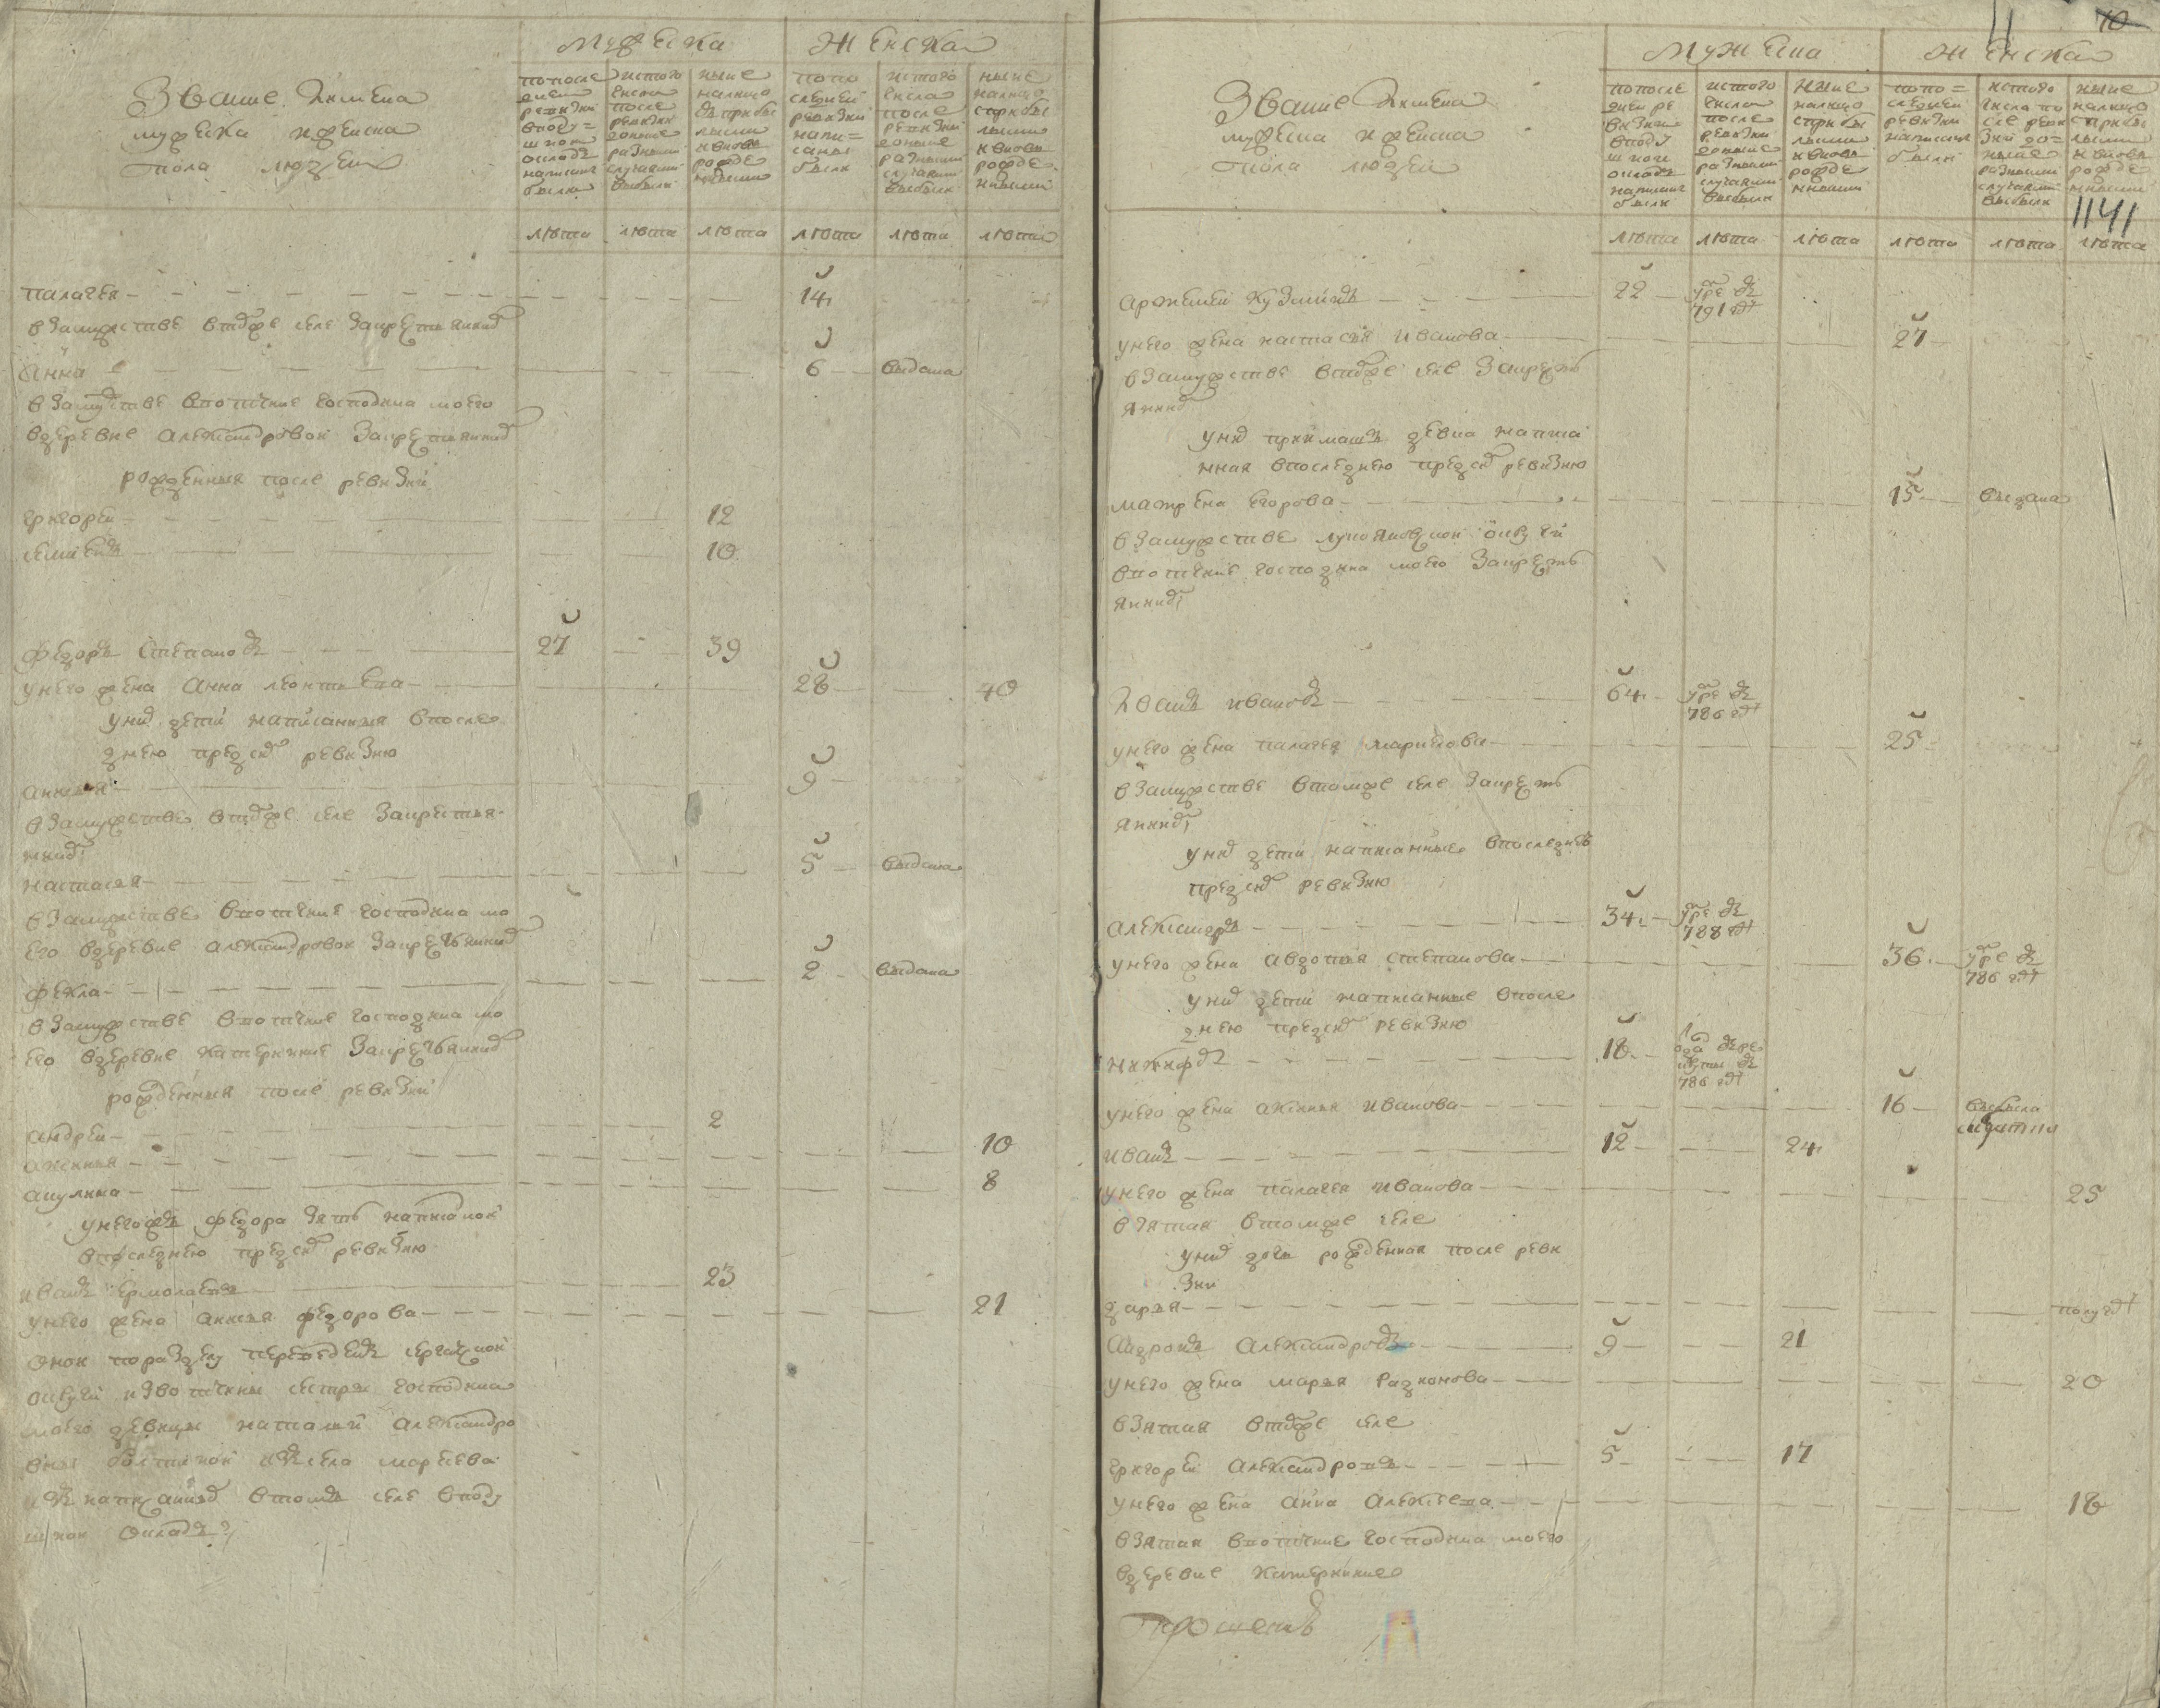 Мужеска Женска
Звание и имена
мужеска и женска
пола людей
по последней ревизии в подушном окладе написано было
из того числа после ревизии до ныне разными случаями выбыли
ныне на лицо с прибылыми и вновь рожденными
по последней ревизии написаны были
из того числа после ревизии до ныне разными случаями выбыли
ныне на лицо с прибылыми и вновь рожденными
лета лета лета лета лета лета
палагея 14
в замужстве в том же селе за крестьянином
анна 6 выдана
в замужстве в вотчине господина моего
в деревне александровой за крестьянином
рожденныя после ревизии
григорей 12
семен 10
федоръ степановъ 27 39
у него жена анна леонтьева 28 40
у них дети написанныя в после
днею пред сим ревизию
аксинья 9
в замужстве в том же селе за крестья
нином
настасья 5 выдана
в замужстве в вотчине господина мо
его в деревне александровой за крестьянином
фекла 2 выдана
в замужстве в вотчине господина мо
его в деревне катеринине за крестьянином
рожденныя после ревизии
андрей 2
аксинья 10
акулина 8
у него ж федора зять написаной
в последнею пред сим ревизию
иванъ ермолаевъ 23
у него жена аксинья федорова 21
оной по разделу переведенъ сергацкой
округи из вотчины сестры господина
моего девицы натальи александро
вны из села
написанной в том селе в поду
шной окладъ
10
11
Мужеска Женска
Звание и имена
мужеска и женска
пола людей
по последней ревизии в подушном окладе написано были
из того числа после ревизии до ныне разными случаями выбыли
ныне на лицо с прибылыми и вновь рожденными
по последней ревизии написаны были
из того числа после ревизии до ныне разными случаями выбыли
ныне на лицо с прибылыми и вновь рожденными
1141
лета лета лета лета лета лета
артемей кузминъ 22 умре въ 791 году
у него жена настасья иванова 27
в замужстве в том же селе за кресть
янином
у них приимышъ девка написа
нная в последнею пред сим ревизию
матрена егорова 15 выдана
в замужстве лукояновской округи
в вотчине господина моего за кресть
янином
иванъ ивановъ 64 умре въ 786 году
у него жена палагея 25
в замужстве в том же селе за кресть
янином
у них дети написанные в последнею
пред сим ревизию
александръ 34 умре въ 788 году
у него жена авдотья степанова 36 умре въ 786 году
у них дети написанные в после
днею пред сим ревизию
никифоръ 18 отдан въ рекруты въ 786 году
у него жена аксинья иванова 16 выбыла
иванъ 12 24
у него жена палагея иванова 25
взятая в том же селе
у них дочь рожденная после реви
зии
дарья полугоду
андронъ александровъ 9 21
у него жена марья родионова 20
взятая в том же селе
григорей александровъ 5 17
у него жена анна алексеева 18
взятая в вотчине господина моего
в деревне катеринине